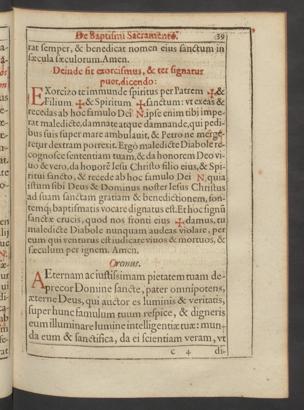 De Baptismi Sacramento. 39
rat semper, & benedicat nomen eius sanctum in
sæcula sæculorum. Amen.
Deinde fit exorcismus, & ter signatur
puer, dicendo:
EXorcizo te immunde spiritus per Patrem ✠ &
Filium ✠ & Spiritum ✠ sanctum: vt exeas &
recedas ab hoc famulo Dei N. ipse enim tibi impe-
rat maledicte, damnate atque damnande, qui pedi-
bus suis super mare ambulauit, & Petro me merge-
retur dextram porrexit. Ergò maledicte Diabole re-
cognosce sententiam tuam, & da honorem Deo vi-
uo & vero, da honorē Iesu Christo filio eius, & Spi-
ritui sancto, & recede ab hoc famulo Dei N. quia
istum sibi Deus & Dominus noster Iesus Christus
ad suam sanctam gratiam & benedictionem, fon-
temq; baptismatis vocare dignatus est. Et hoc signū
sanctæ crucis, quod nos fronti eius ✠ damus, tu
maledicte Diabole nunquam audeas violare, per
eum qui venturus est iudicare viuos & mortuos, &
sæculum per ignem. Amen.
Oremus.
AEternam ac iustissimam pietatem tuam de-
precor Domine sancte, pater omnipotens,
æterne Deus, qui auctor es luminis & veritatis,
super hunc famulum tuum respice, & digneris
eum illuminare lumine intelligentiæ tuæ: mun-
da eum & sanctifica, da ei scientiam veram, vt
C 4 di-